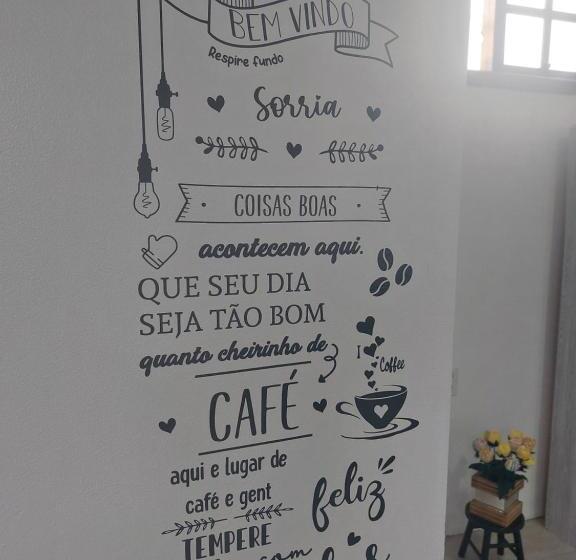 BEM VINDO
Respire fundo
Sorria
COISAS BOAS
acontecem aqui.
QUE SEU DIA
SEJA TÃO BOM
quanto cheirinho de
I
Coffee
CAFÉ
aqui e lugar de
café e gent
feliz
TEMPERE
com